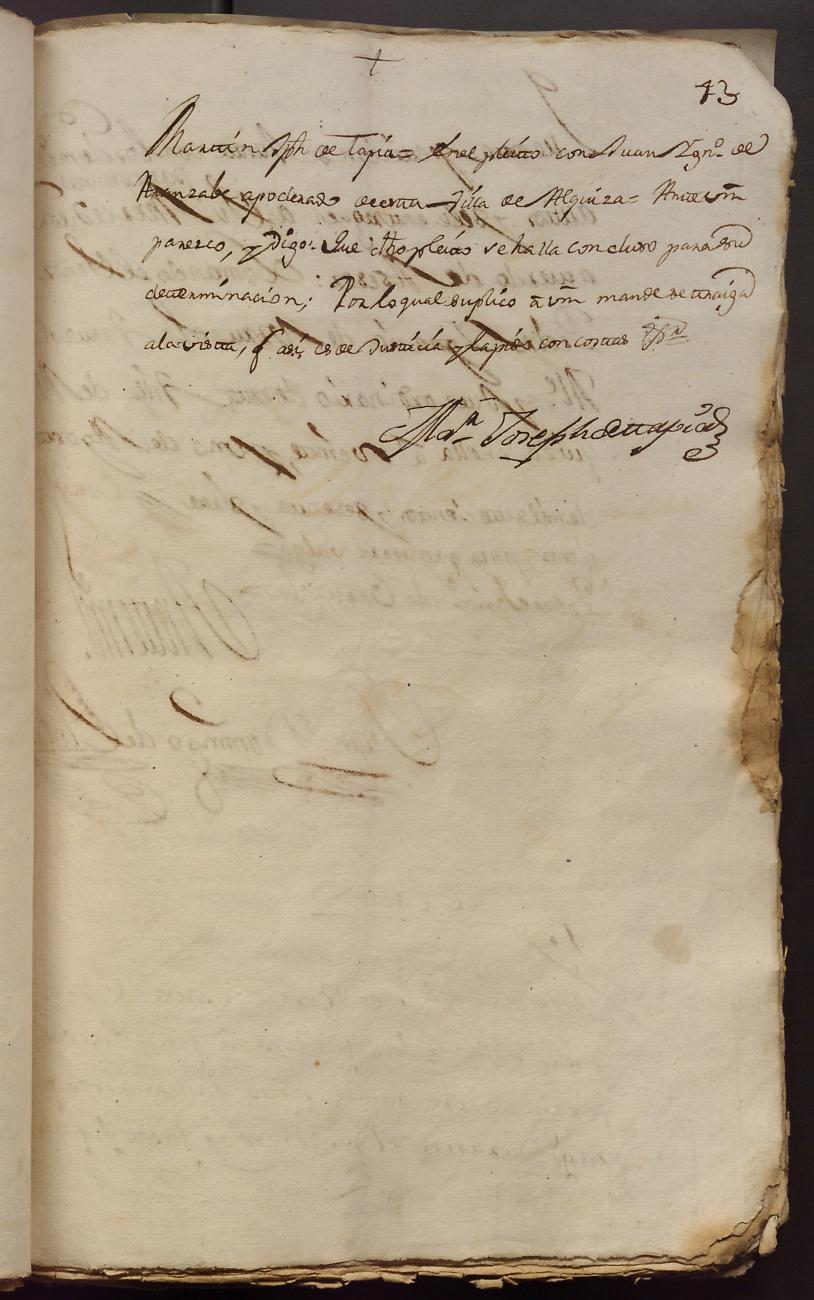 +
43
Martin Jph de Tapia = En el pleito con Juan Ygnº. de
Aranzabe apoderado de esta Villa de Alquiza = Ante vm
parezco, y Digo: Que dho pleito se halla concluso para su
determinacion; Por lo qual suplico à vm mande se traiga
a la vista, q̃ asi es de Justicia y la pido con costas
Mar.n Joseph de tapia